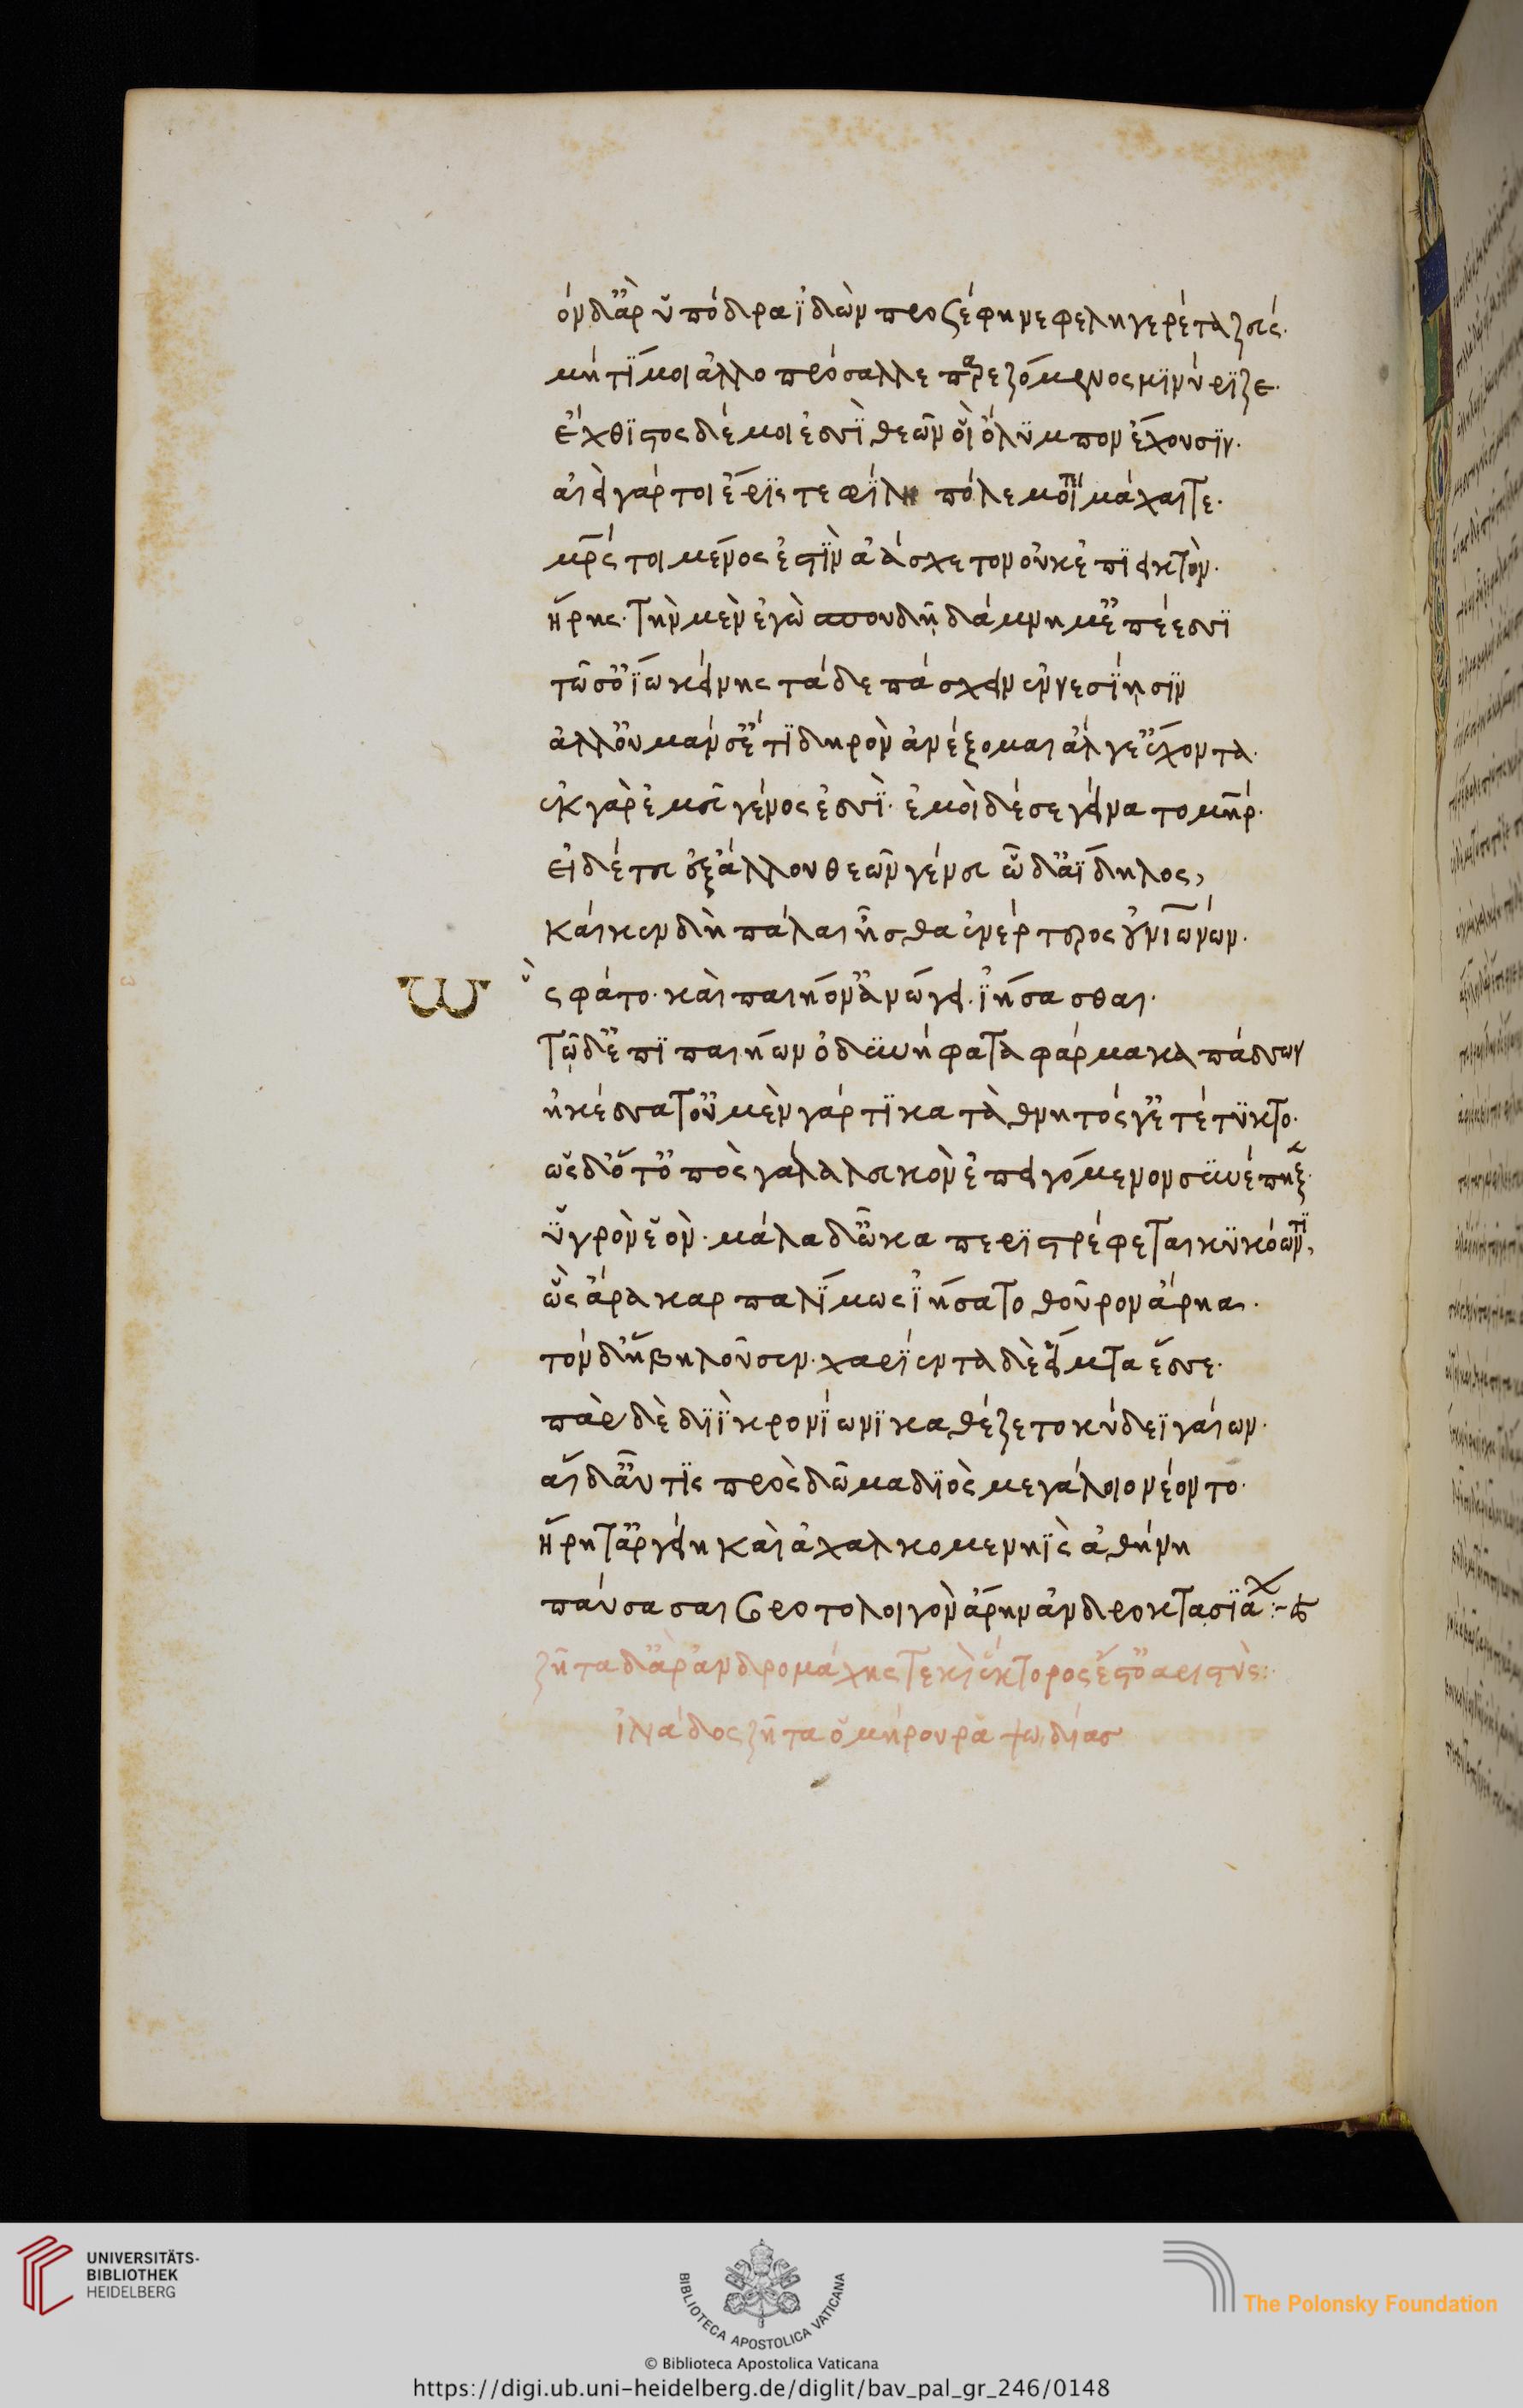 ὸν δ' ἂρ ὑπόδρα ἰδὼν προσέφη νεφεληγερέτα ζεύς.
μή τί μοι ἀλλοπρόσαλλε παρεζόμενος μινύριζε.
ἔχθιστος δέ μοι ἐσσὶ θεῶν οἳ ὄλυμπον ἔχουσιν.
αἰεὶ γάρ τοι ἔρις τε φίλη πόλεμοί τε μάχαι τε.
μητρός τοι μένος ἐστὶν ἀάσχετον οὐκ ἐπιεικτὸν.
ἥρης. τὴν μὲν ἐγὼ σπουδῇ δάμνημ' ἐπέεσσι
τῶ σ' ὀίω κείνης τάδε πάσχειν ἐννεσίησιν
ἀλλ' οὐ μάν σ' ἔτι δηρὸν ἀνέξομαι ἄλγε' ἔχοντα.
ἐκ γὰρ ἐμεῦ γένος ἐσσὶ. ἐμοὶ δέ σε γείνατο μήτηρ.
εἰ δέ τευ ἐξ ἄλλου θεῶν γένευ ὧδ' ἀΐδηλος,
καί κεν δὴ πάλαι ἦσθα ἐνέρτερος οὐρανιώνων.
Ὣς φάτο. καὶ παιήον' ἀνώγει ἰήσασθαι.
τῷ δ' ἐπὶ παιήων ὀδυνήφατα φάρμακα πάσσων
ἠκέσσατ' οὐ μὲν γάρ τι καταθνητός γε τέτυκτο.
ὡς δ' ὅτ' ὀπὸς γάλα λευκὸν ἐπειγόμενον συνέπηξεν
ὑγρὸν ἐὸν. μάλα δ' ὦκα περιστρέφεται κυκόωντι,
ὣς ἄρα καρπαλίμως ἰήσατο θοῦρον ἄρηα.
τὸν δ' ἥβη λοῦσεν. χαρίεντα δὲ εἵματα ἕσσε.
πὰρ δὲ διὶ κρονίωνι καθέζετο κύδεϊ γαίων.
αἱ δ' αὖτις πρὸς δῶμα διὸς μεγάλοιο νέοντο.
ἥρη τ' ἀργείη καὶ ἀλαλκομενηῒς ἀθήνη
παύσασαι βροτολοιγὸν ἄρην ἀνδροκτασιάων :-
ζῆτα δ' ἂρ ἀνδρομάχης τε καὶ ἕκτορος ἔστ' ὀαριστύς:
ἰλιάδος ζῆτα ὁμήρου ῥαψωδίας
UNIVERSITÄTS-
BIBLIOTHEK
HEIDELBERG
BIBLIOTECA APOSTOLICA VATICANA
© Biblioteca Apostolica Vaticana
The Polonsky Foundation
https://digi.ub.uni-heidelberg.de/diglit/bav_pal_gr_246/0148